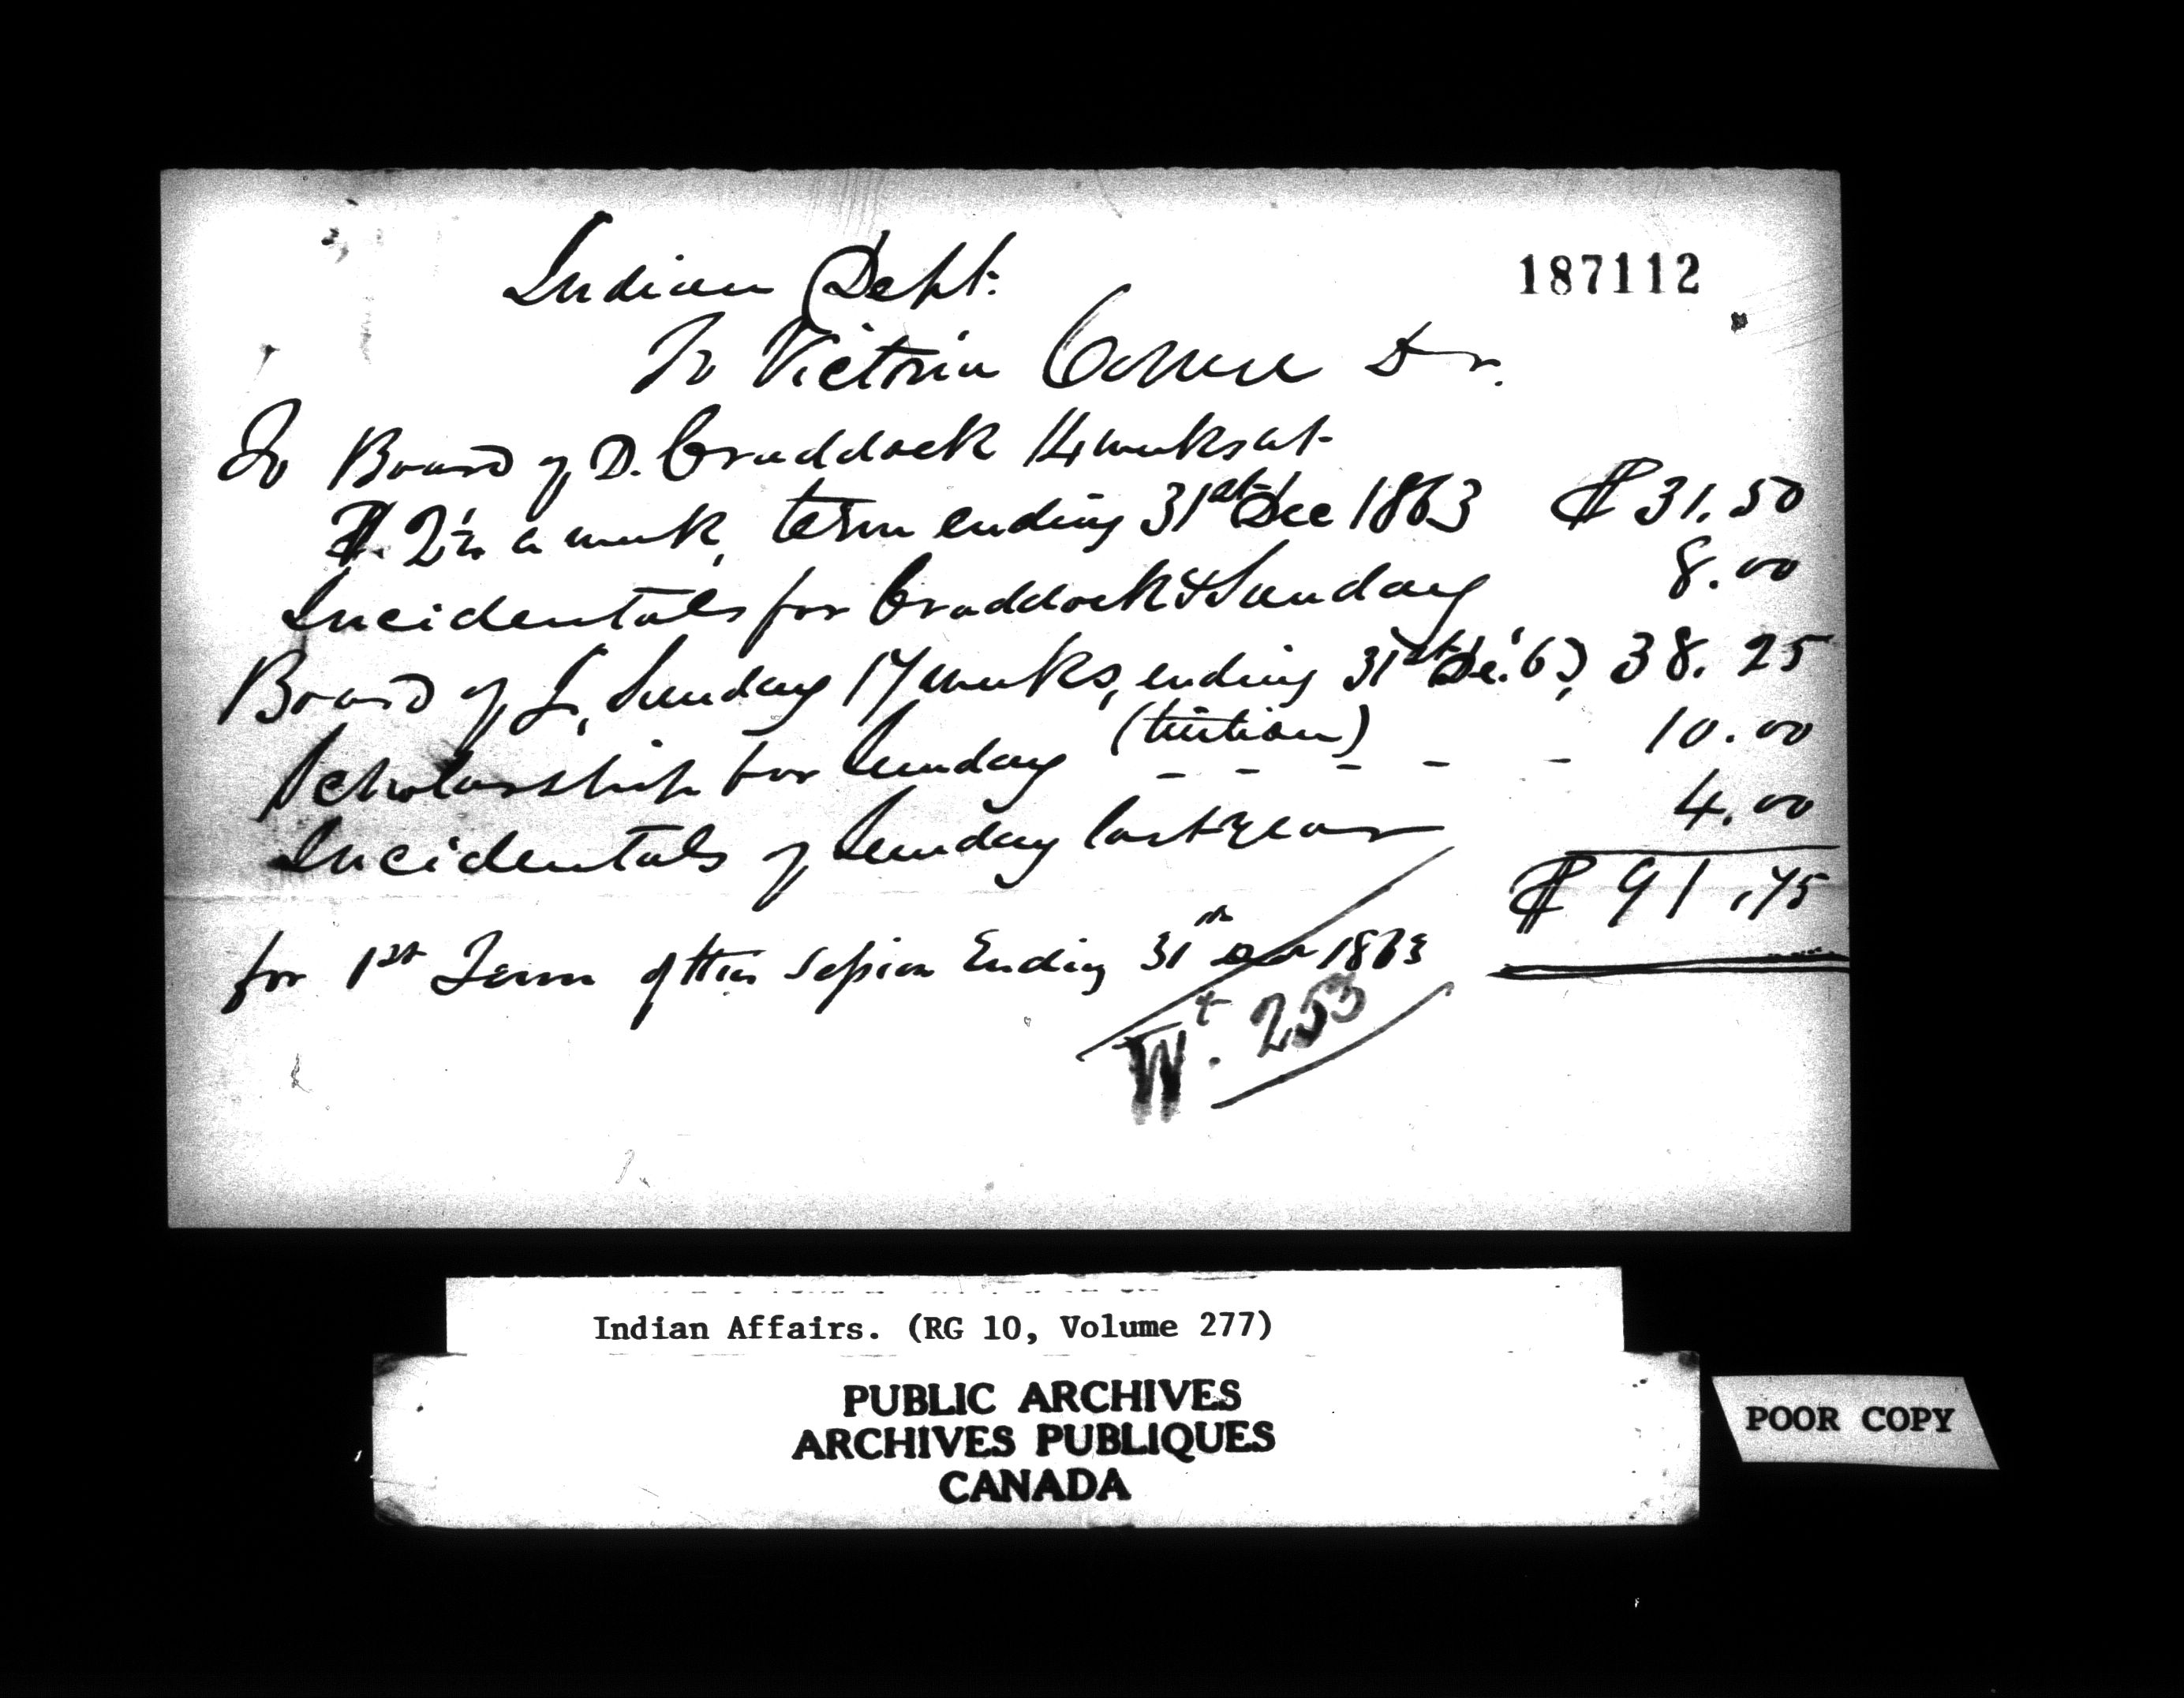 187112
Indian Dept.
To Victoria College Dr.
To Board of D. Craddock 14 weeks at
$. 2¼ a week, term ending 31st Dec 1863 $ 31.50
Incidentals for Craddock & Sunday 8.00
Board of J. Sunday 17 weeks, ending 31st De. '63, 38.25
Scholarship for Sunday (tuition) - - - - - 10.00
Incidentals of Sunday last year 4.00
$ 91.75
for 1st Term of this Session Ending 31st Dec 1863
Wt. 253
Indian Affairs. (RG 10, Volume 277)
PUBLIC ARCHIVES
ARCHIVES PUBLIQUES
CANADA
POOR COPY